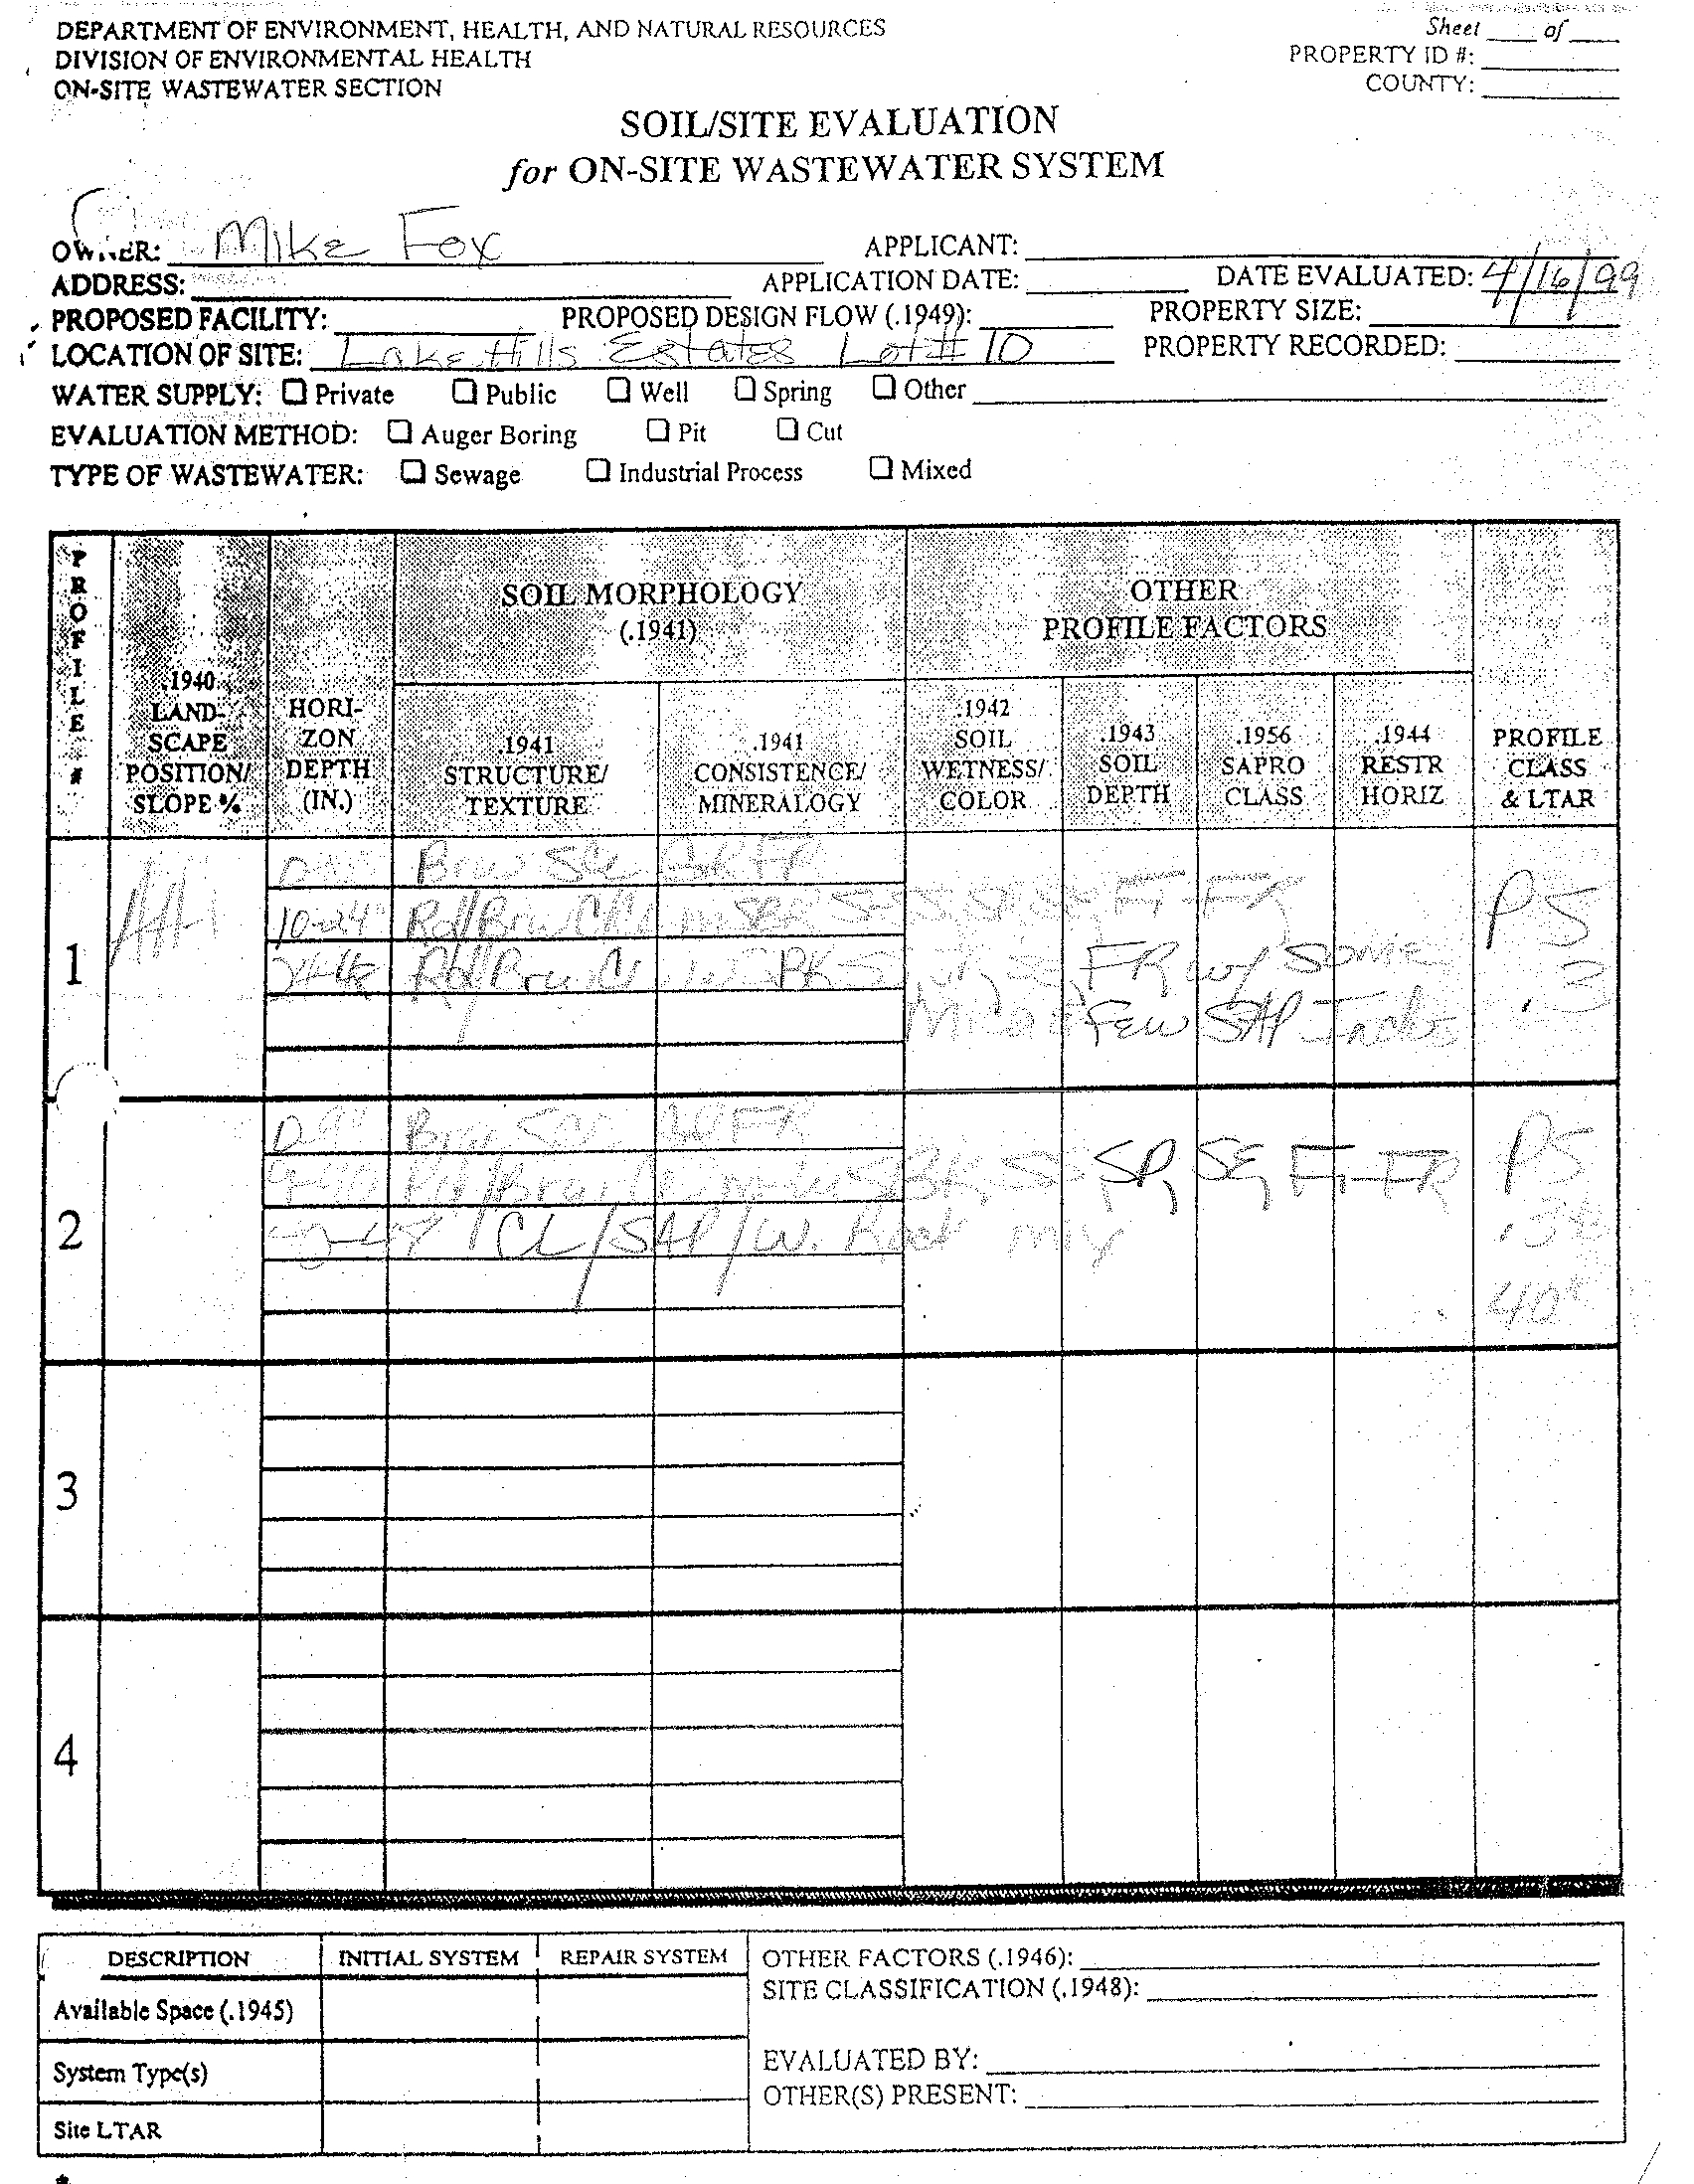 DEPARTMENT OF ENVIRONMENT, HEALTH, AND NATURAL RESOURCES
DIVISION OF ENVIRONMENTAL HEALTH
ON-SITE WASTEWATER SECTION
Sheet ____ of ____
PROPERTY ID #:
COUNTY:
SOIL/SITE EVALUATION
for ON-SITE WASTEWATER SYSTEM
OWNER: Mike Fox APPLICANT:
ADDRESS: APPLICATION DATE: DATE EVALUATED: 4/16/99
PROPOSED FACILITY: PROPOSED DESIGN FLOW (.1949): PROPERTY SIZE:
LOCATION OF SITE: Lake Hills Estates Lot# 10 PROPERTY RECORDED:
WATER SUPPLY: ☐ Private ☐ Public ☐ Well ☐ Spring ☐ Other
EVALUATION METHOD: ☐ Auger Boring ☐ Pit ☐ Cut
TYPE OF WASTEWATER: ☐ Sewage ☐ Industrial Process ☐ Mixed
PROFILE #
.1940 LAND-SCAPE POSITION/ SLOPE %
HORI-ZON DEPTH (IN.)
SOIL MORPHOLOGY (.1941)
.1941 STRUCTURE/ TEXTURE
.1941 CONSISTENCE/ MINERALOGY
OTHER PROFILE FACTORS
.1942 SOIL WETNESS/ COLOR
.1943 SOIL DEPTH
.1956 SAPRO CLASS
.1944 RESTR HORIZ
PROFILE CLASS & LTAR
1
Brw FR
10-24" Rd/Brw SBK FI-FR PS
Rd/Brw C FR w/ some .3
Mica Few SAP
2
Brw FR PS
SBK, SS, SP, SE, FI-FR
CL/SAP/W. Rock mix
40"
3
4
DESCRIPTION INITIAL SYSTEM REPAIR SYSTEM
Available Space (.1945)
System Type(s)
Site LTAR
OTHER FACTORS (.1946):
SITE CLASSIFICATION (.1948):
EVALUATED BY:
OTHER(S) PRESENT: